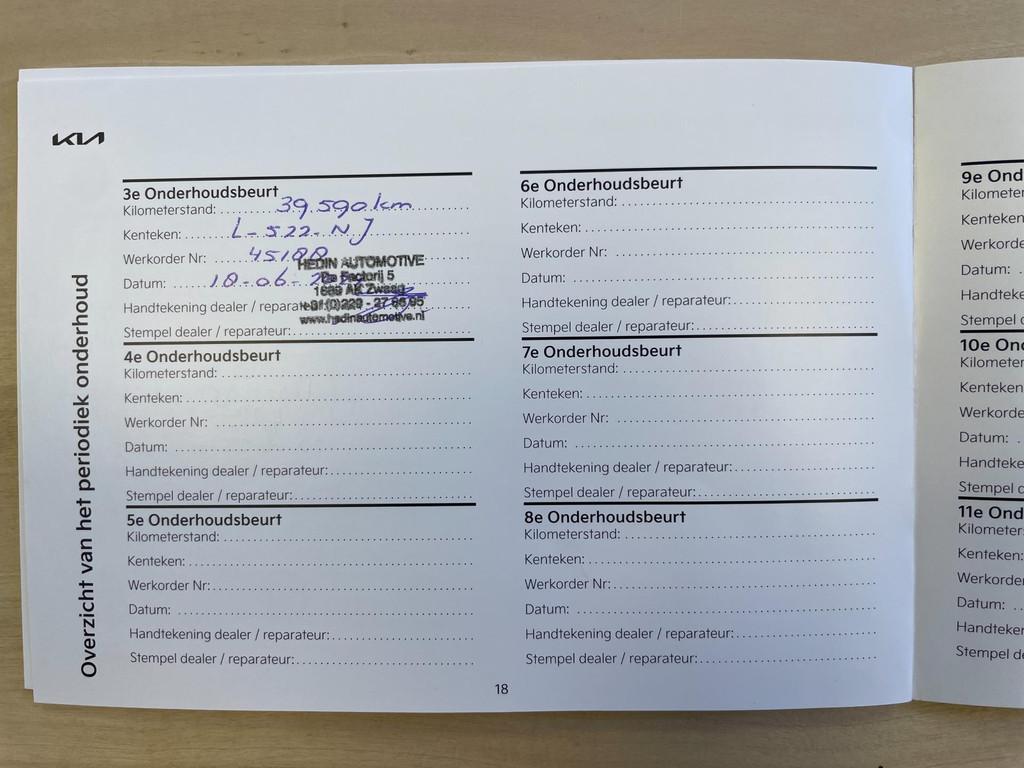 KIA
Overzicht van het periodiek onderhoud
3e Onderhoudsbeurt
Kilometerstand: 39.590 km
Kenteken: L-522-NJ
Werkorder Nr: 45188
Datum: 18-06-
Handtekening dealer / reparateur:
Stempel dealer / reparateur:
HEDIN AUTOMOTIVE
De Factorij 5
1689 AK Zwaag
www.hedinautomotive.nl
4e Onderhoudsbeurt
Kilometerstand:
Kenteken:
Werkorder Nr:
Datum:
Handtekening dealer / reparateur:
Stempel dealer / reparateur:
5e Onderhoudsbeurt
Kilometerstand:
Kenteken:
Werkorder Nr:
Datum:
Handtekening dealer / reparateur:
Stempel dealer / reparateur:
6e Onderhoudsbeurt
Kilometerstand:
Kenteken:
Werkorder Nr:
Datum:
Handtekening dealer / reparateur:
Stempel dealer / reparateur:
7e Onderhoudsbeurt
Kilometerstand:
Kenteken:
Werkorder Nr:
Datum:
Handtekening dealer / reparateur:
Stempel dealer / reparateur:
8e Onderhoudsbeurt
Kilometerstand:
Kenteken:
Werkorder Nr:
Datum:
Handtekening dealer / reparateur:
Stempel dealer / reparateur:
18
9e Ond
Kilometer
Kenteken
Werkorde
Datum:
Handteke
Stempel d
10e On
Kilometer
Kenteken
Werkorde
Datum:
Handteke
Stempel d
11e Ond
Kilometer
Kenteken:
Werkorder
Datum:
Handteker
Stempel de